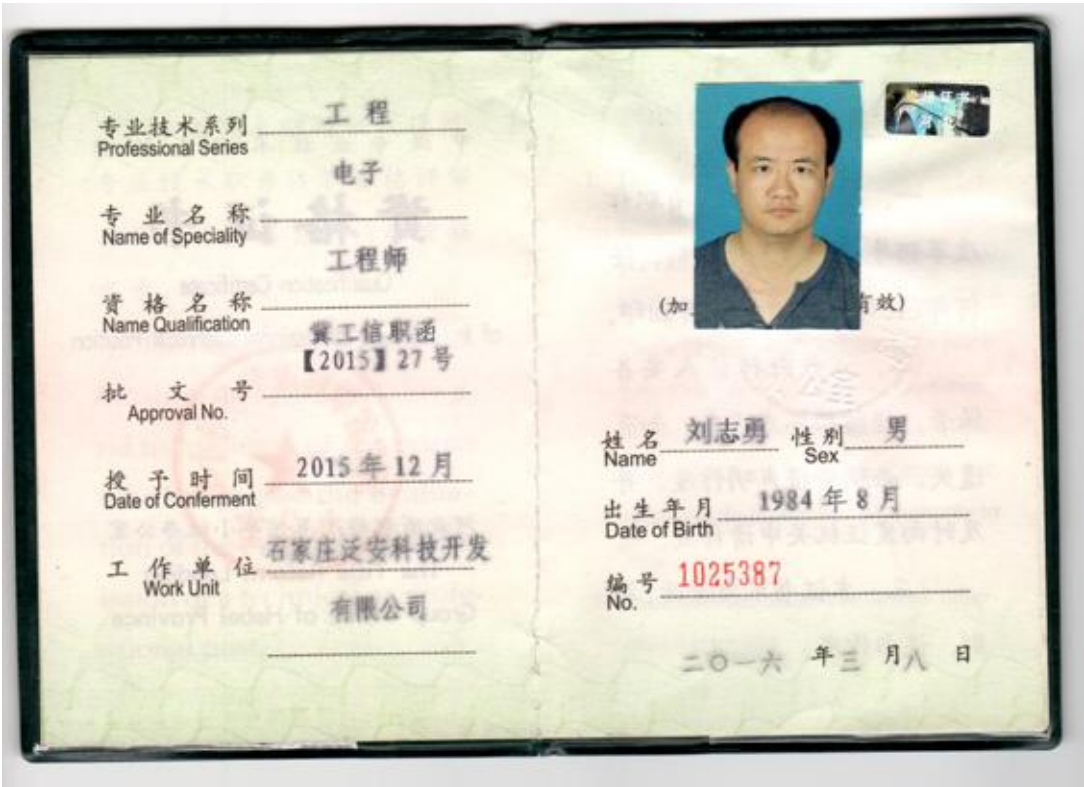 专业技术系列 工 程
Professional Series
电子
专 业 名 称
Name of Speciality
工程师
资 格 名 称
Name Qualification
冀工信职函
【2015】27 号
批 文 号
Approval No.
授 予 时 间 2015 年 12 月
Date of Conferment
工 作 单 位 石家庄泛安科技开发
Work Unit
有限公司
(加 有效)
姓 名 刘志勇 性 别 男
Name Sex
出 生 年 月 1984 年 8 月
Date of Birth
编 号 1025387
No.
二〇一六 年 三 月 八 日